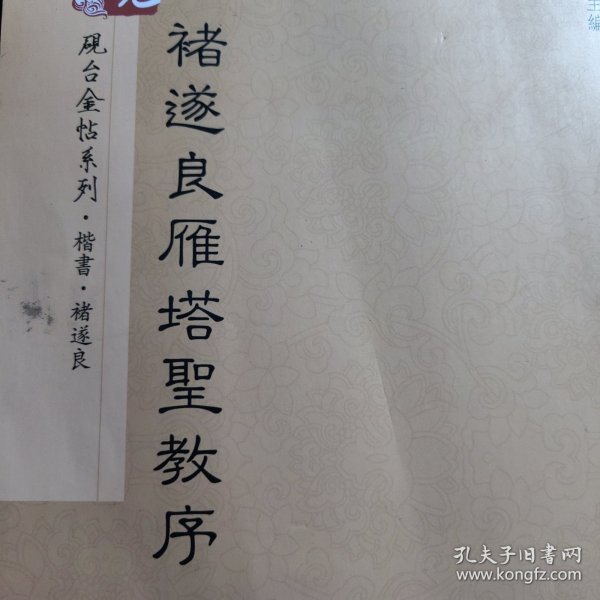 主編
褚遂良雁塔聖教序
硯台金帖系列·楷書·褚遂良
孔夫子旧書网
www.kongfz.com